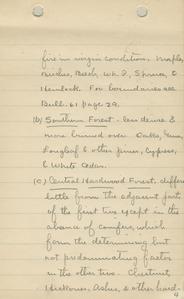 fire in virgin condition. Maple,
Birches, Beech, Wh. P., Spruce, &
Hemlock. For boundaries see
Bull. 61 page 29.
(b) Southern Forest - less dense &
more burned over. Oaks, Gums,
Longleaf & other pines, Cypress,
& White Cedar.
(c) Central Hardwood Forest, differs
little from the adjacent part
of the first two except in the
absence of conifers, which
form the determining but
not predominating factor
in the other two. Chestnut,
Hickories, Ashes, & other hard-